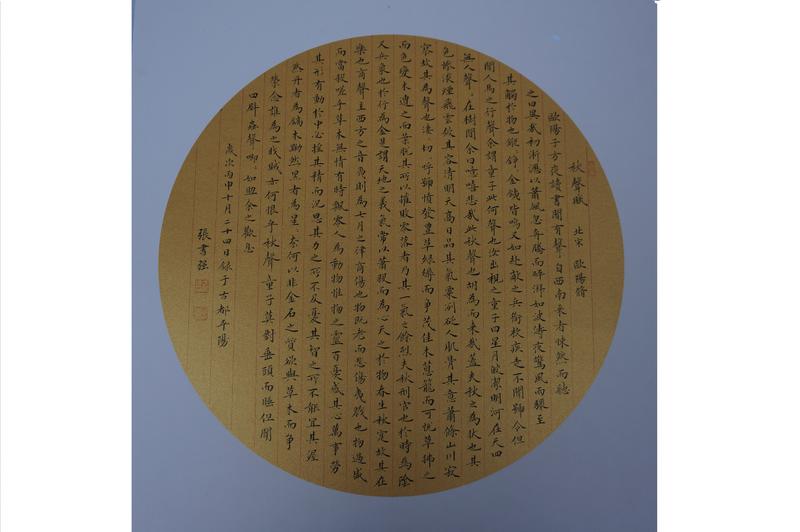 秋聲賦 北宋 歐陽脩
歐陽子方夜讀書聞有聲自西南来者悚然而聽
之曰異哉初淅瀝以蕭颯忽奔騰而砰湃如波濤夜驚風雨驟至
其觸於物也鏦、錚、金鐵皆鳴又如赴敵之兵銜枚疾走不聞號令但
聞人馬之行聲余謂童子此何聲也汝出視之童子曰星月皎潔明河在天四
無人聲、在樹間余曰噫嘻悲哉此秋聲也胡為而来哉蓋夫秋之為狀也其
色慘淡煙飛雲斂其容清明天高日晶其氣栗冽砭人肌骨其意蕭條山川寂
寥故其為聲也淒、切、呼號憤發豐草綠縟而爭茂佳木蔥籠而可悅草拂之
而色變木遭之而葉脫其所以摧敗零落者乃其一氣之餘烈夫秋刑官也於時為陰
又兵象也於行為金是謂天地之義氣常以肅殺而為心天之於物春生秋實故其在
樂也商聲主西方之音夷則為七月之律商傷也物既老而悲傷夷戮也物過盛
而當殺嗟乎草木無情有時飄零人為動物惟物之靈百憂感其心萬事勞
其形有動於中必搖其精而況思其力之所不及憂其智之所不能宜其渥
然丹者為槁木黝然黑者為星、奈何以非金石之質欲與草木而爭
榮念誰為之戕賊亦何恨乎秋聲童子莫對垂頭而睡但聞
四壁蟲聲唧、如助余之歎息
歲次丙申十月二十四日錄于古都平陽
張書强